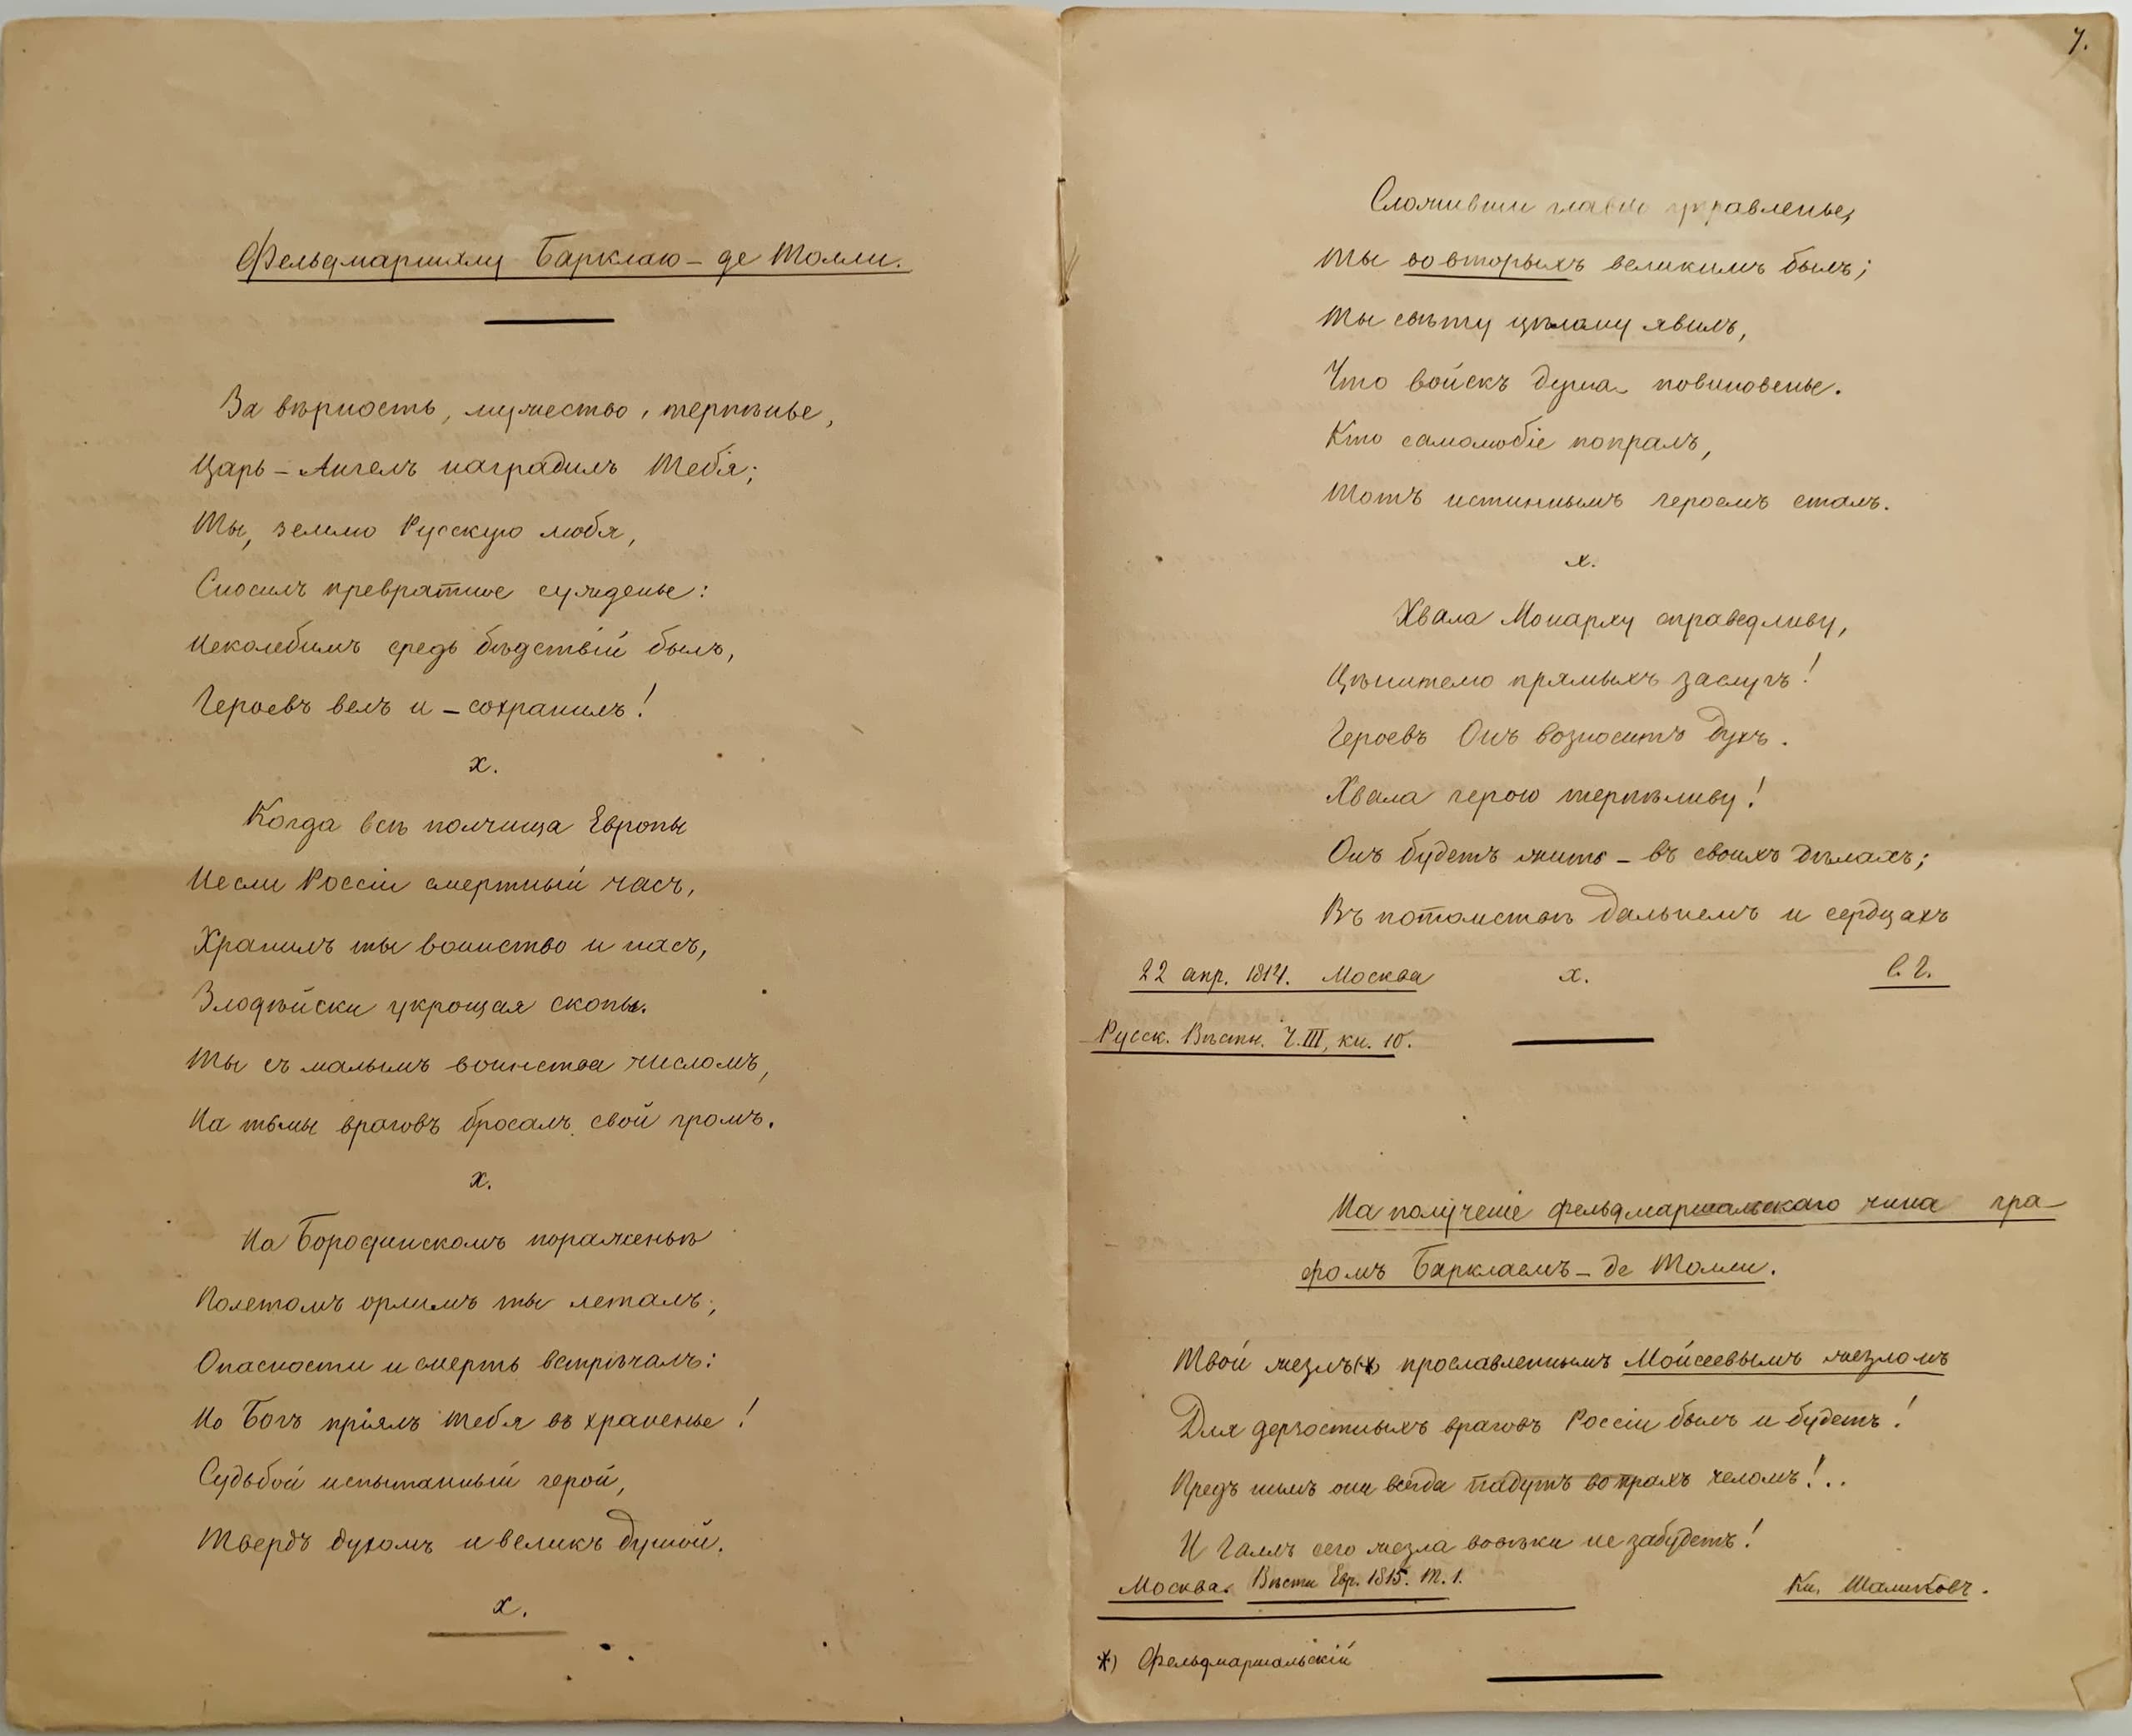 Фельдмаршалу Барклаю – де Толли.
За вѣрность, мужество, терпѣнье,
Царь – Ангелъ наградилъ Тебя;
Ты, землю Русскую любя,
Сносилъ превратное сужденье:
Неколебимъ средь бѣдствій былъ,
Героевъ велъ и – сохранилъ!
х.
Когда всѣ полчища Европы
Несли Россіи смертный часъ,
Хранилъ ты воинство и насъ,
Злодѣйски укрощая скопы.
Ты съ малымъ воинства числомъ,
На тьмы враговъ бросалъ свой громъ.
х.
На Бородинскомъ пораженьѣ
Полетомъ орлимъ ты леталъ;
Опасности и смерть встрѣчалъ:
Но Богъ пріялъ тебя въ храненье!
Судьбой испытанный герой,
Твердъ духомъ и великъ душой.
х.
7.
Сложивши главно управленье,
Ты во вторыхъ великимъ былъ;
Ты свѣту цѣлому явилъ,
Что войскъ душа – повиновенье.
Кто самолюбіе попралъ,
Тотъ истиннымъ героемъ сталъ.
х.
Хвала Монарху справедливу,
Цѣнителю прямыхъ заслугъ!
Героевъ Онъ возноситъ духъ.
Хвала герою терпѣливу!
Онъ будетъ жить – въ своихъ дѣлахъ;
Въ потомствѣ дальнемъ и сердцахъ
22 апр. 1814. Москва х. С. Г.
Русск. Вѣстн. Ч. III, кн. 10.
На полученіе фельдмаршальскаго чина гра–
фомъ Барклаемъ – де Толли.
Твой жезлъ(*) прославленнымъ Мойсеевымъ жезломъ
Для дерзостныхъ враговъ Россіи былъ и будетъ!
Предъ нимъ они всегда падутъ во прахъ челомъ!..
И Галлъ сего жезла вовѣки не забудетъ!
Москва. Вѣстн. Евр. 1815. Т. 1. Кн. Шаликовъ.
*) Фельдмаршальскій